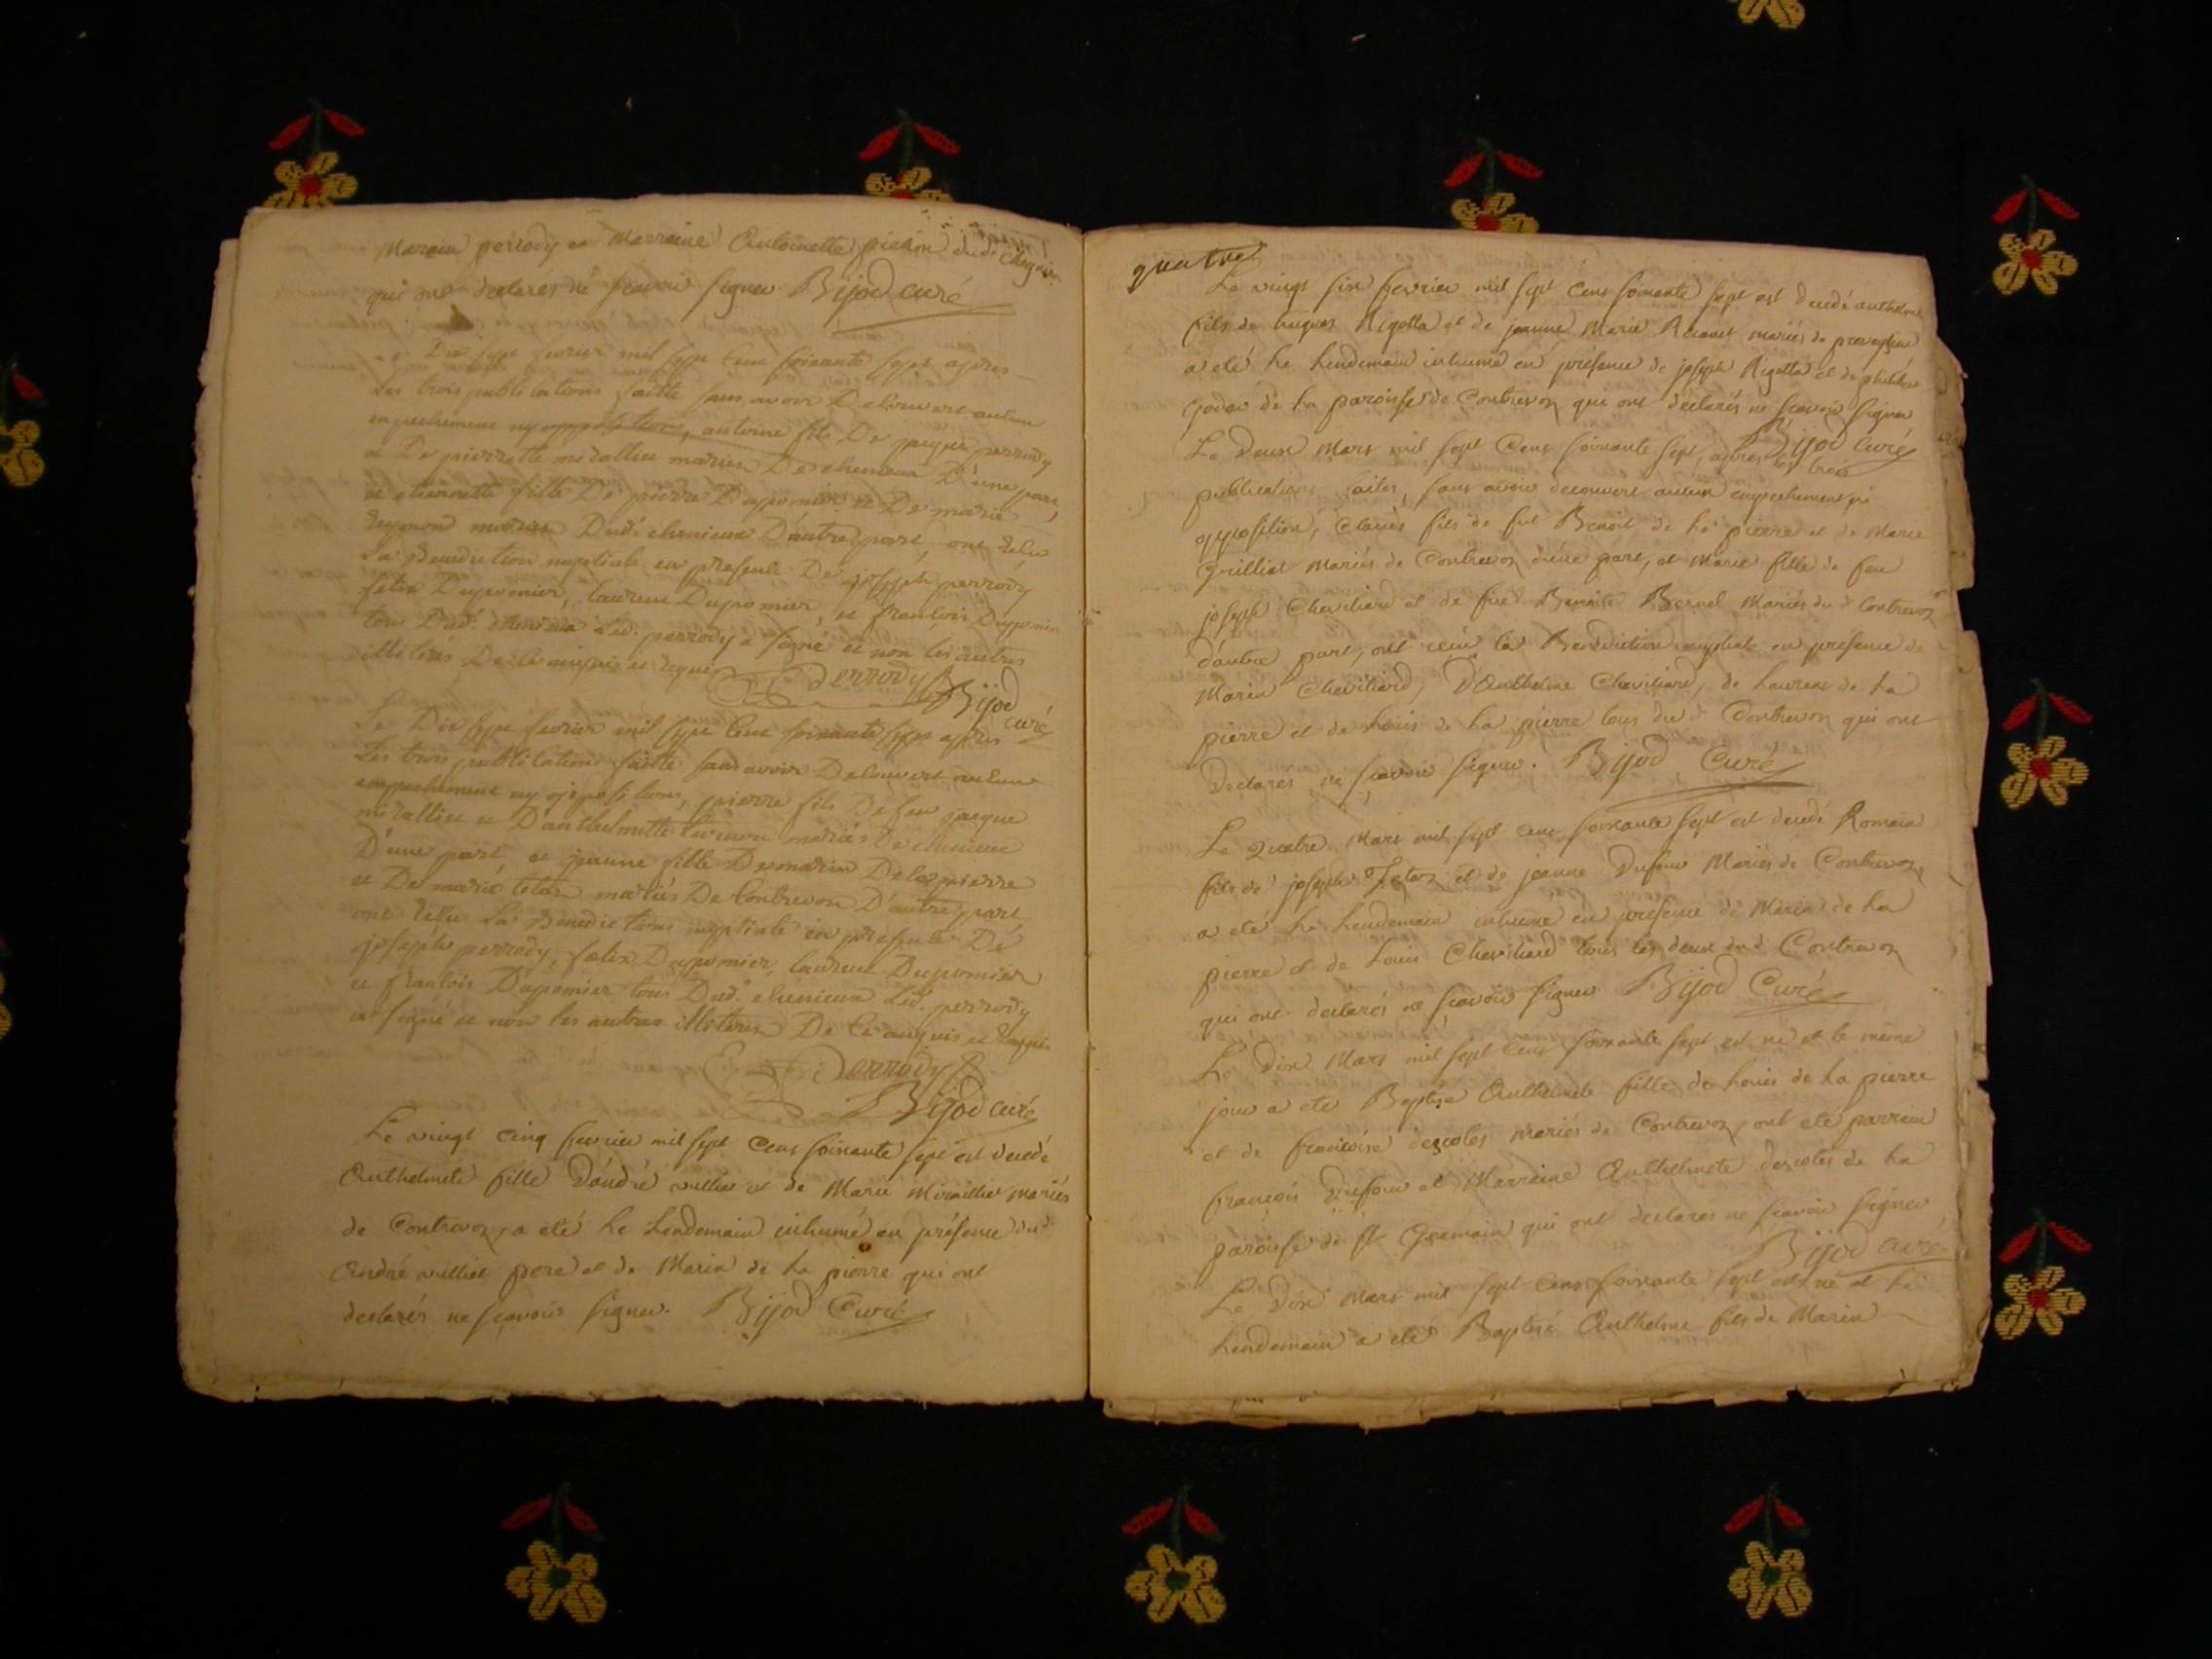 Marin perrody et Marraine Antoinette pichon dud. chegnieu
qui ont declarés né scavoir signer Bijod curé
Dix sept fevrier mil sept cent soixante sept apres
Les trois publications faitte sans avoir Decouvert aucun
empechement ny oppositions, antoine fils De jacque perrody
et De pierrette mirallier mariés De chenieux D'une part,
et etiennette fille De pierre Dupomier et De marie
Reymond mariés Dud. chenieux D'autre part, ont Reçu
La Benediction nuptiale en presence De joseph perrody
felix Dupomier, laurent Dupomier, et francois Dupomier
tous Dud. chenieux Led. perrody a signé et non les autres
illiterés De ce enquis et requis Perrody Bijod
curé
Le Dix sept fevrier mil sept cent soixante sept apres
Les trois publications faitte sans avoir Decouvert aucun
empechement ny oppositions, pierre fils De feu jacque
mirallier et D'anthelmette mariés De chenieux
D'une part, et jeanne fille De marin De la pierre
et De marie mariés De Contrevon D'autre part
ont Reçu La Benediction nuptiale en presence De
joseph perrody, felix Dupomier, laurent Dupomier
et francois Dupomier tous Dud. chenieux Led. perrody
a signé et non les autres illiterés De ce enquis et requis
Perrody
Bijod curé
Le vingt cinq fevrier mil sept cent soixante sept est decedé
Anthelmete fille D'andré villiet et de Marie Miraillet mariés
de Contrevoz, a eté Le Lendemain inhumé en présence dud.
André villiet pere et de Marin de La pierre qui ont
declarés ne scavoir signer. Bijod Curé
quatre
Le vingt six fevrier mil sept cent soixante sept est decedé anthelme
fils de hugues Rigotta et de jeanne Marie mariés de preveyzieu
a eté Le Lendemain inhumé en presence de joseph Rigotta et de philibert
godar de La paroisse de Contrevoz qui ont déclarés ne scavoir signer
Bijod curé
Le Deux Mars mil sept Cent soixante sept, apres les trois
publications faites, sans avoir decouvert aucun empechement ni
opposition, fils de fut Benoit de La pierre et de Marie
Grilliat Mariés de Contrevoz d'une part, et Marie fille de feu
joseph Cheviliard et de fue Benoite Mariés dud. Contrevoz
d'autre part, ont reçu la Benediction nuptiale en présence de
Marin Cheviliard, D'Anthelme Cheviliard, de Laurent de La
pierre et de Louis de La pierre tous dud. Contrevoz qui ont
declarés ne scavoir signer. Bijod Curé
Le Quatre Mars mil sept cent soixante sept est decedé Romain
fils de joseph et de jeanne Dufour Mariés de Contrevoz,
a eté Le Lendemain inhumé en presence de Marin de La
pierre et de Louis Cheviliard tous les deux dud. Contrevoz
qui ont declarés ne scavoir signer Bijod Curé
Le Dix Mars mil sept Cent soixante sept est né et le même
jour a eté Baptisé Anthelmete fille de Louis de La pierre
et de francoise descotes mariés de Contrevoz, ont eté parrein
françois Dufour et Marraine Anthelmete descotes de La
paroisse de St Germain qui ont declarés ne scavoir signer
Bijod curé
Le Dix Mars mil sept Cent soixante sept est né et Le
Lendemain a eté Baptisé Anthelme fils de Marin